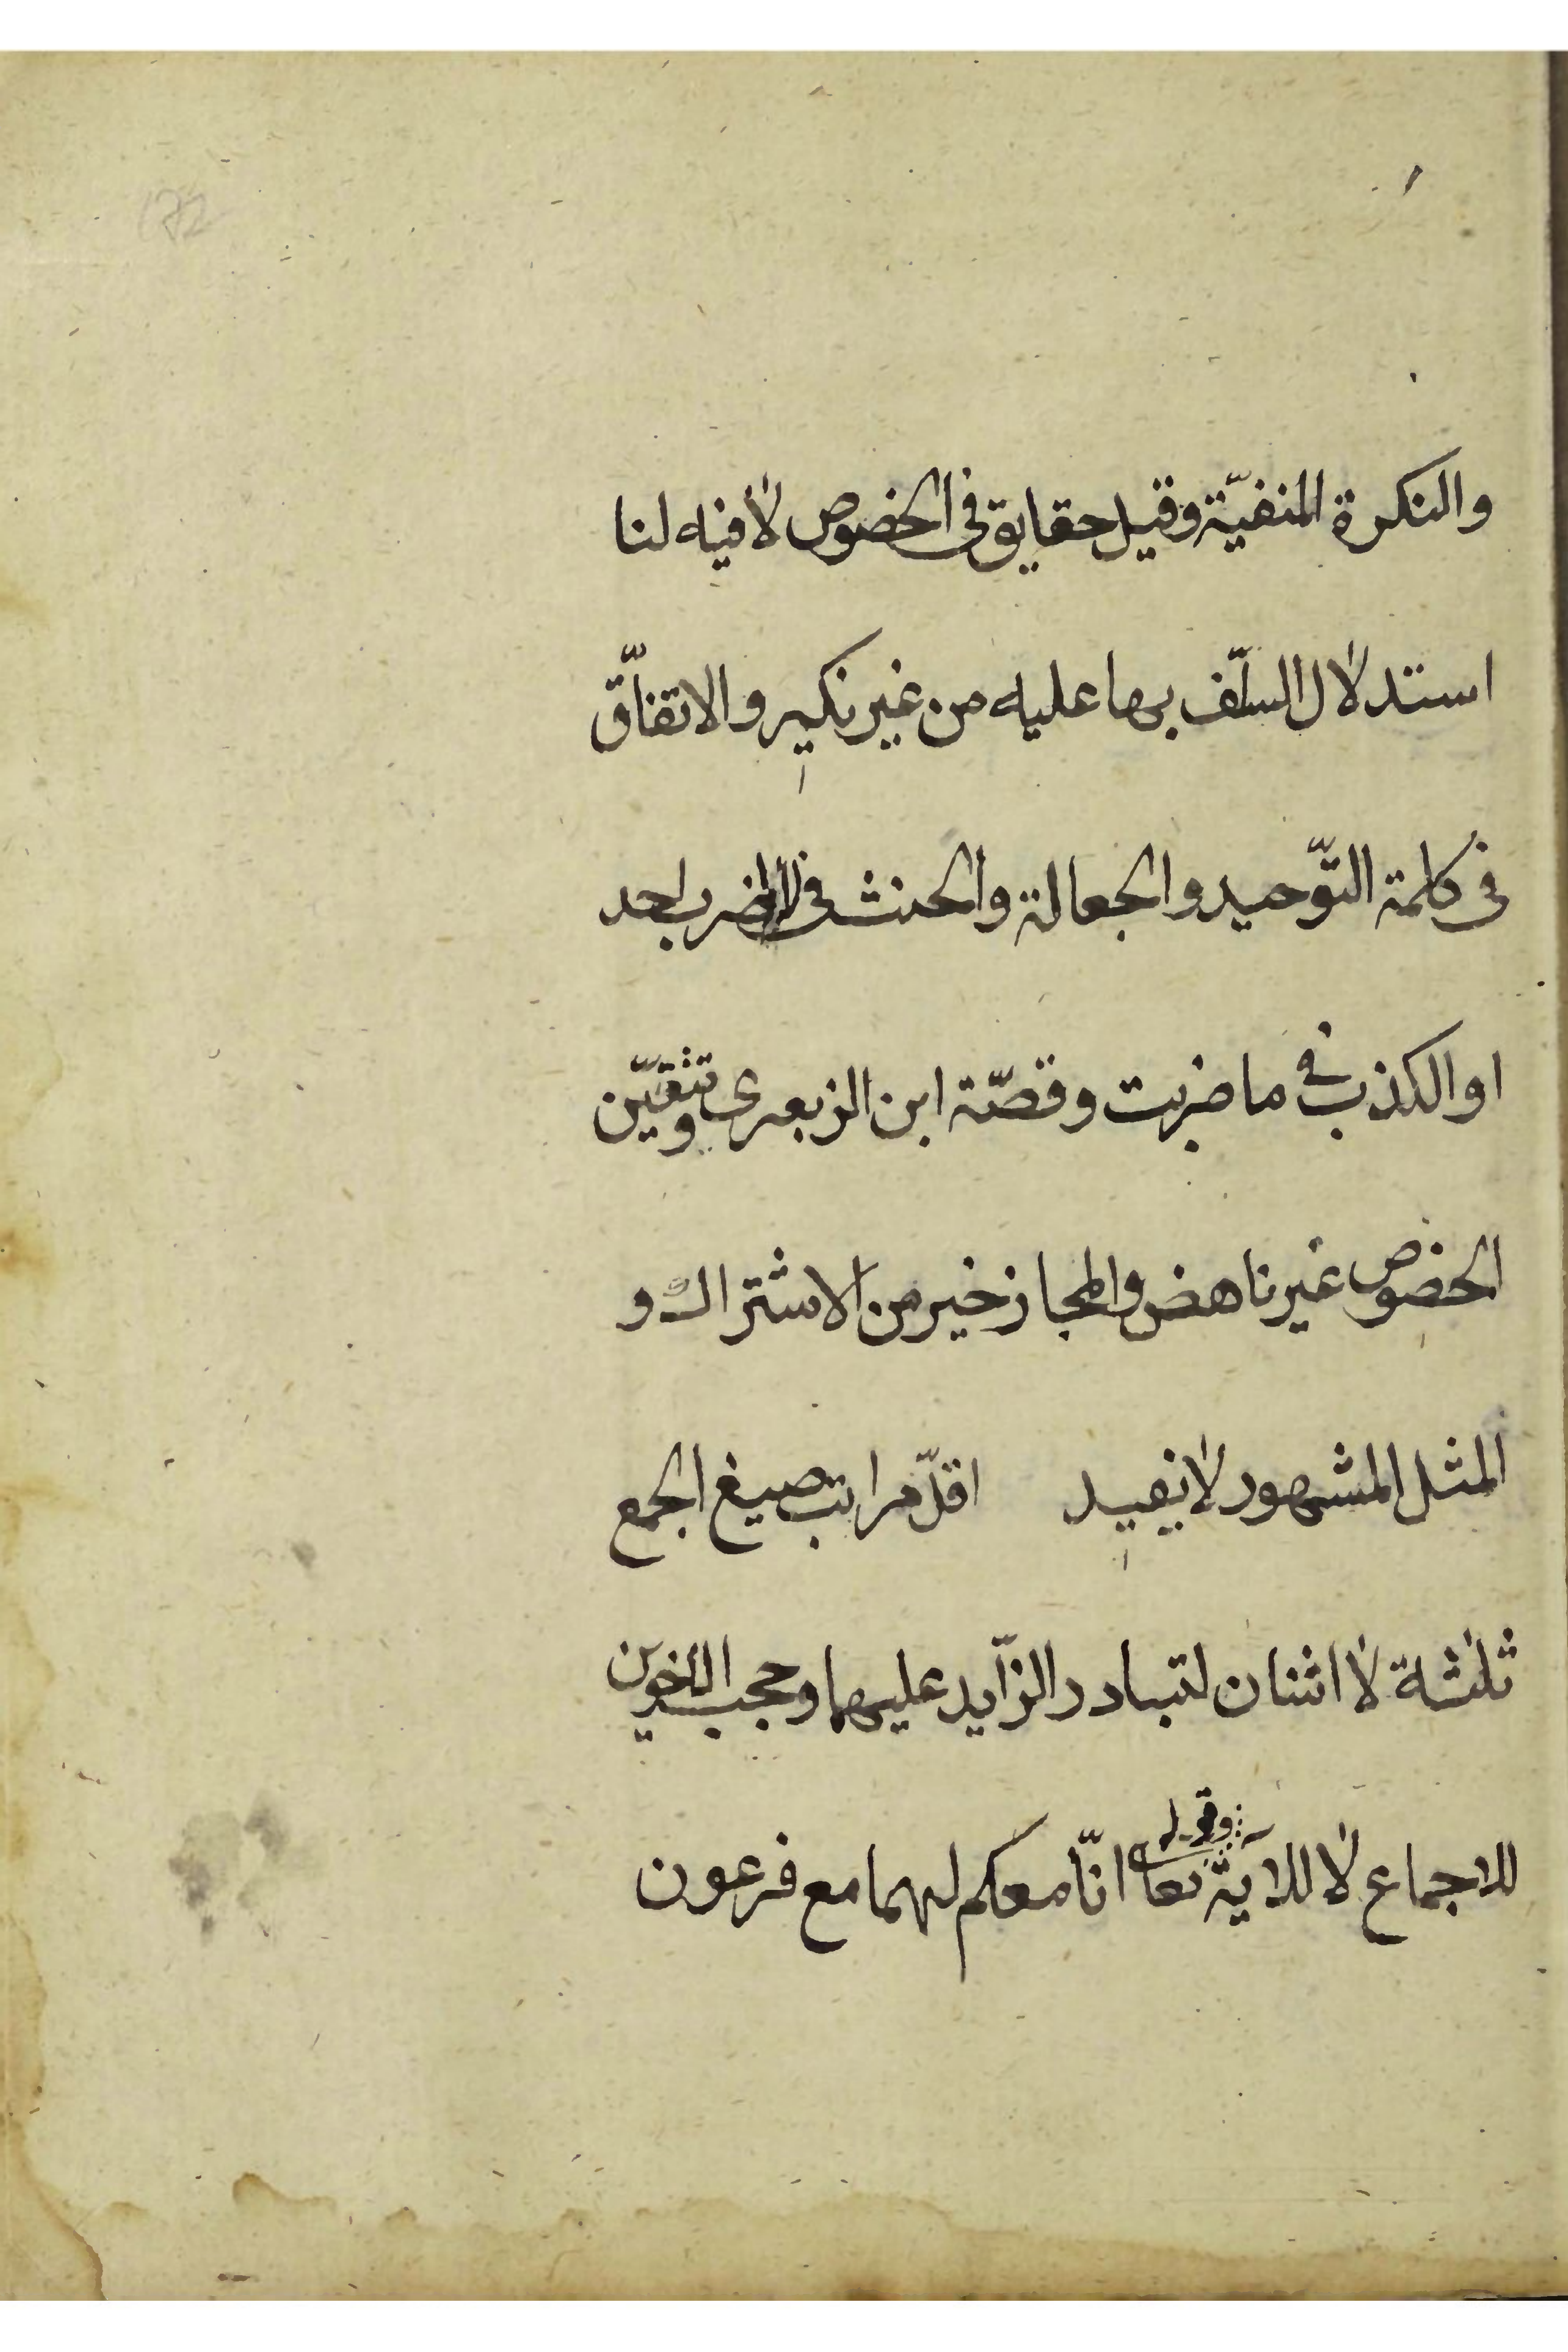 والنكرة المنفيّة وقيل حقايق فى الخصوص لا فيه لنا
استدلال السلّف بها عليه من غير نكير والاتفّاق
فى كلمة التّوحيد والجعالة والحنث فى لا اضرب احد
او الكذب فى ما ضربت وقصّة ابن الزبعرى وتيقّن
الخصوص غير ناهض والمجاز خير من الاشتراك و
المثل المشهور لا يفيد اقلّ مراتب صيغ الجمع
ثلثة لا اثنان لتبادر الزّايد عليهما وحجب الاخوين
للاجماع لا للاية وقوله تعا انّا معكم لهما مع فرعون